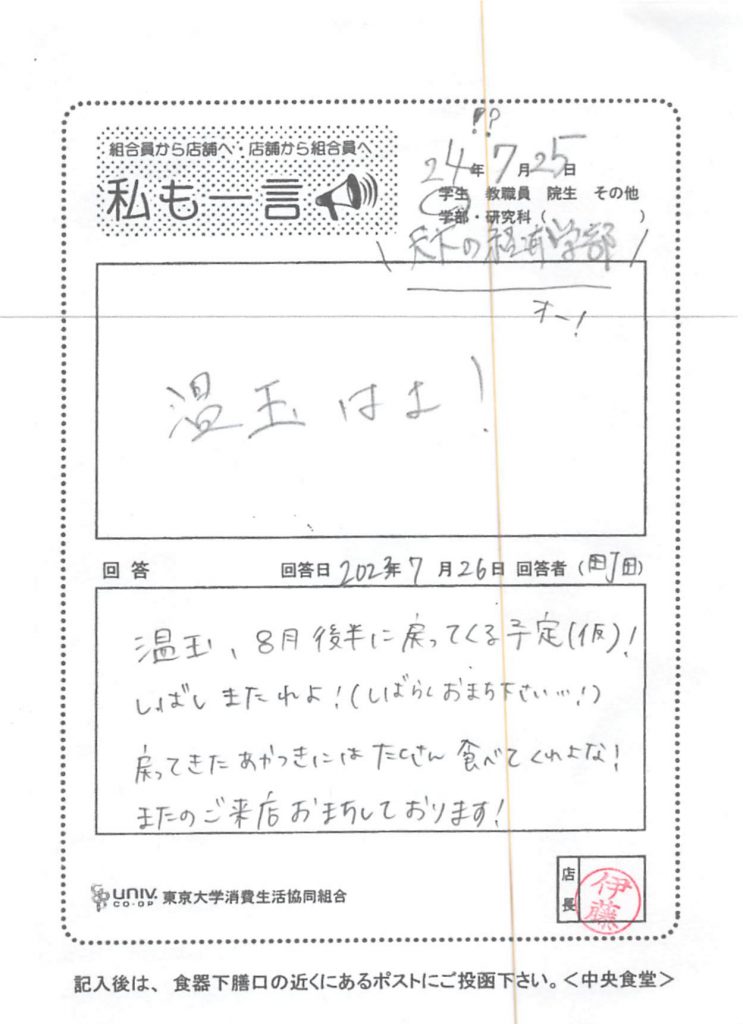 組合員から店舗へ・店舗から組合員へ
私も一言
??
24年7月25日
学生 教職員 院生 その他
学部・研究科( )
\天下の経済学部/
オー!
温玉はよ!
回答 回答日 2023年7月26日 回答者(町田)
温玉、8月後半に戻ってくる予定(仮)!
しばしまたれよ!(しばらくおまち下さい…!)
戻ってきたあかつきにはたくさん食べてくれよな!
またのご来店おまちしております!
UNIV. CO-OP 東京大学消費生活協同組合
店長 伊藤
記入後は、食器下膳口の近くにあるポストにご投函下さい。<中央食堂>